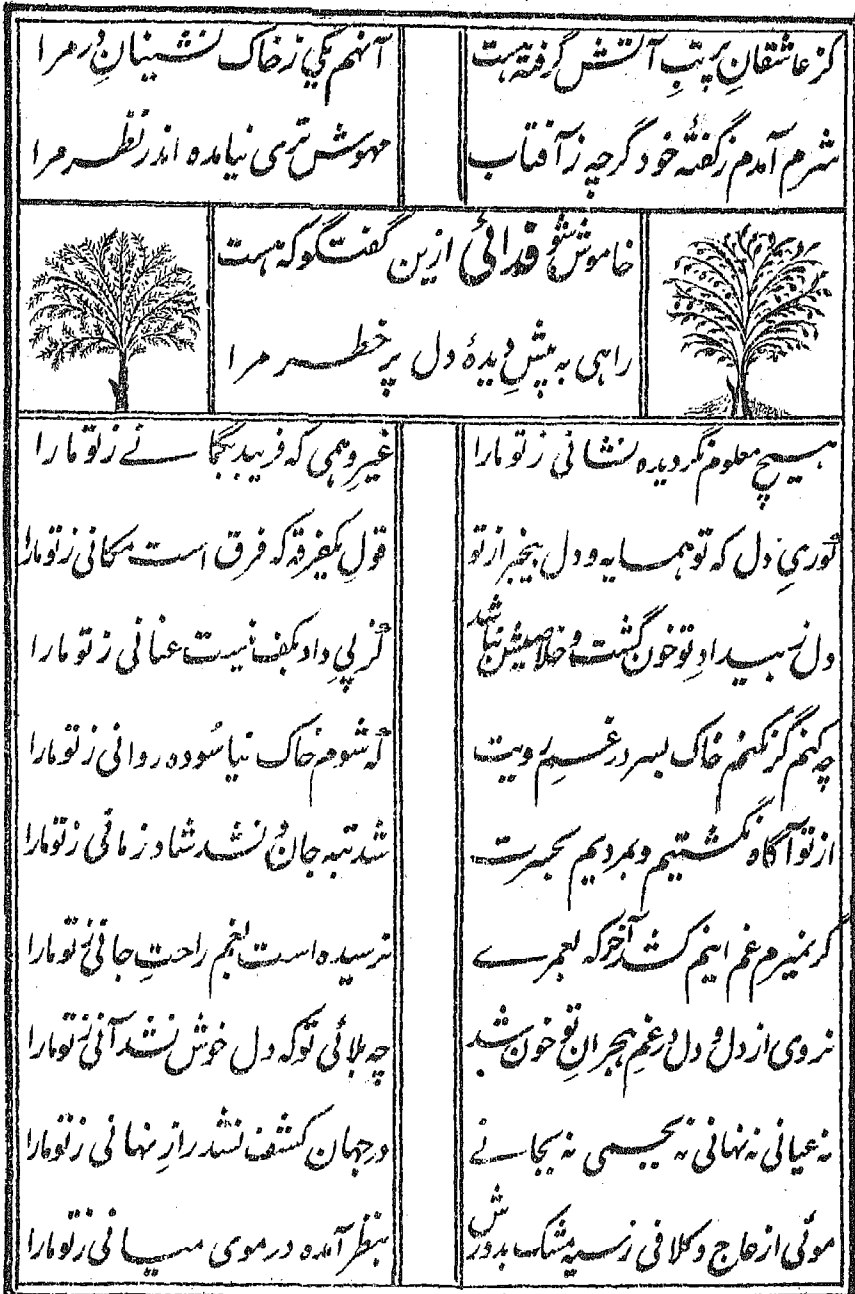 کز عاشقانِ پر تبِ آتش گرفته هست
آنهم یکی ز خاک نشینانِ در مرا
شرم آمدم ز گفتهٔ خود گرچه ز آفتاب
مهوش تری نیامده اندر نظر مرا
خاموش شو فدائی ازین گفتگو که هست
راهی به پیشِ دیدهٔ دل پر خطر مرا
هیچ معلوم نگردیده نشانی ز تو مارا
غیرِ وهمی که فریبد بگمانے ز تو مارا
کوریِ دل که تو همسایه و دل بیخبر از تو
قولِ یکفرقه که فرق است مکانی ز تو مارا
دل ز بیدادِ تو خون گشت و خلاصیش نباشد
کز پیِ داد بکف نیست عنانی ز تو مارا
چه کنم گر نکنم خاک بسر در غمِ رویت
که شوم خاک نیاسوده روانی ز تو مارا
از تو آگاه نگشتیم و بمردیم بحسرت
شد تبه جان و نشد شاد زمانی ز تو مارا
گر نمیرم غم اینم کشد آخر که بعمرے
نرسیده است بغم راحتِ جانی ز تو مارا
نروی از دل و دل در غمِ هجرانِ تو خون شد
چه بلائی تو که دل خوش نشد آنی ز تو مارا
نه عیانی نه نهانی نه بجسمی نه بجانے
در جهان کشف نشد رازِ نهانی ز تو مارا
موئی از عاج و کلافی ز سیه مشک بدورش
بنظر آمده در موی میانی ز تو مارا